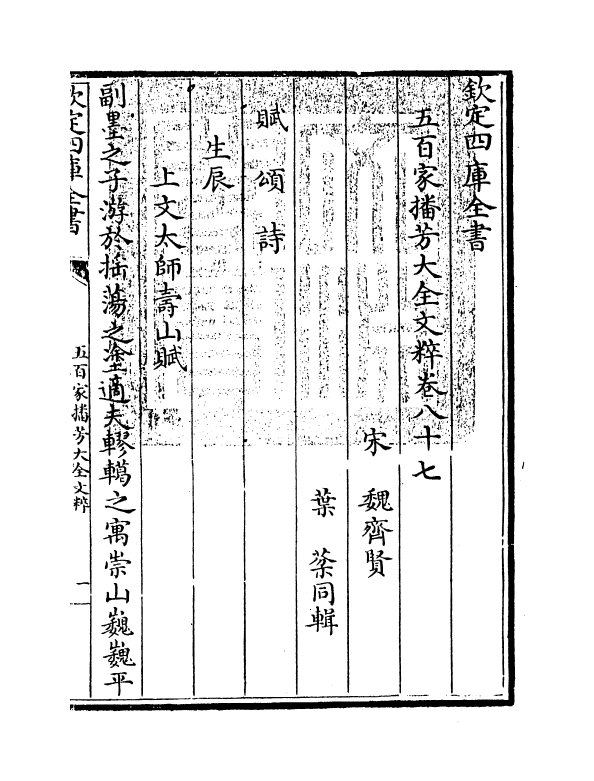 欽定四庫全書
五百家播芳大全文粹卷八十七
宋 魏齊賢
葉棻同輯
賦頌詩
生辰
上文太師壽山賦
副墨之子游於摇蕩之塗適夫轇轕之寓崇山巍巍平
欽定四庫全書
五百家播芳大全文粹
一